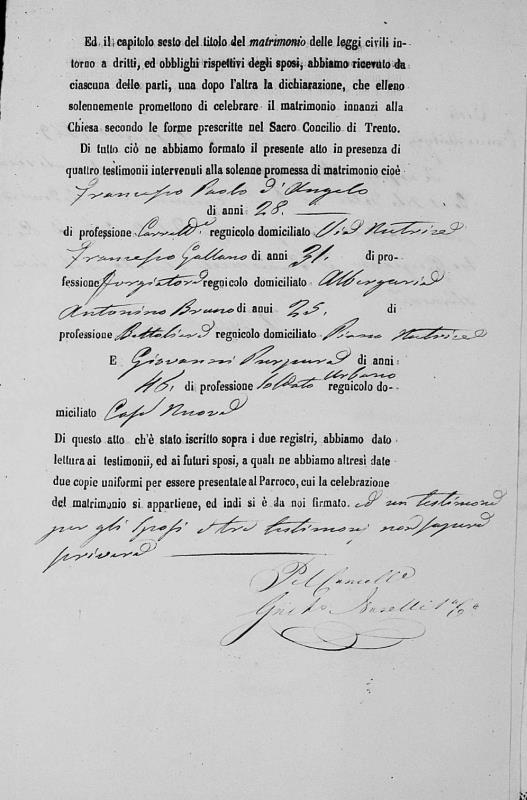 Ed il capitolo sesto del titolo del matrimonio delle leggi civili in-
torno a dritti, ed obblighi rispettivi degli sposi, abbiamo ricevuto da
ciascuna delle parti, una dopo l'altra la dichiarazione, che elleno
solennemente promettono di celebrare il matrimonio innanzi alla
Chiesa secondo le forme prescritte nel Sacro Concilio di Trento.
Di tutto ciò ne abbiamo formato il presente atto in presenza di
quattro testimonii intervenuti alla solenne promessa di matrimonio cioè
Francesco Paolo d'Angelo
di anni 28.
di professione regnicolo domiciliato Via Nutrice
Francesco Gallano di anni 31. di pro-
fessione regnicolo domiciliato Albergaria
Antonino Bruno di anni 25. di
professione regnicolo domiciliato Piano Nutrice
E Giovanni Purpura di anni
46. di professione Soldato Urbano regnicolo do-
miciliato Case Nuove
Di questo atto ch'è stato iscritto sopra i due registri, abbiamo dato
lettura ai testimonii, ed ai futuri sposi, a quali ne abbiamo altresì date
due copie uniformi per essere presentate al Parroco, cui la celebrazione
del matrimonio si appartiene, ed indi si è da noi firmato. ed un testimone
per gli Sposi e tre testimoni non sapere
scrivere